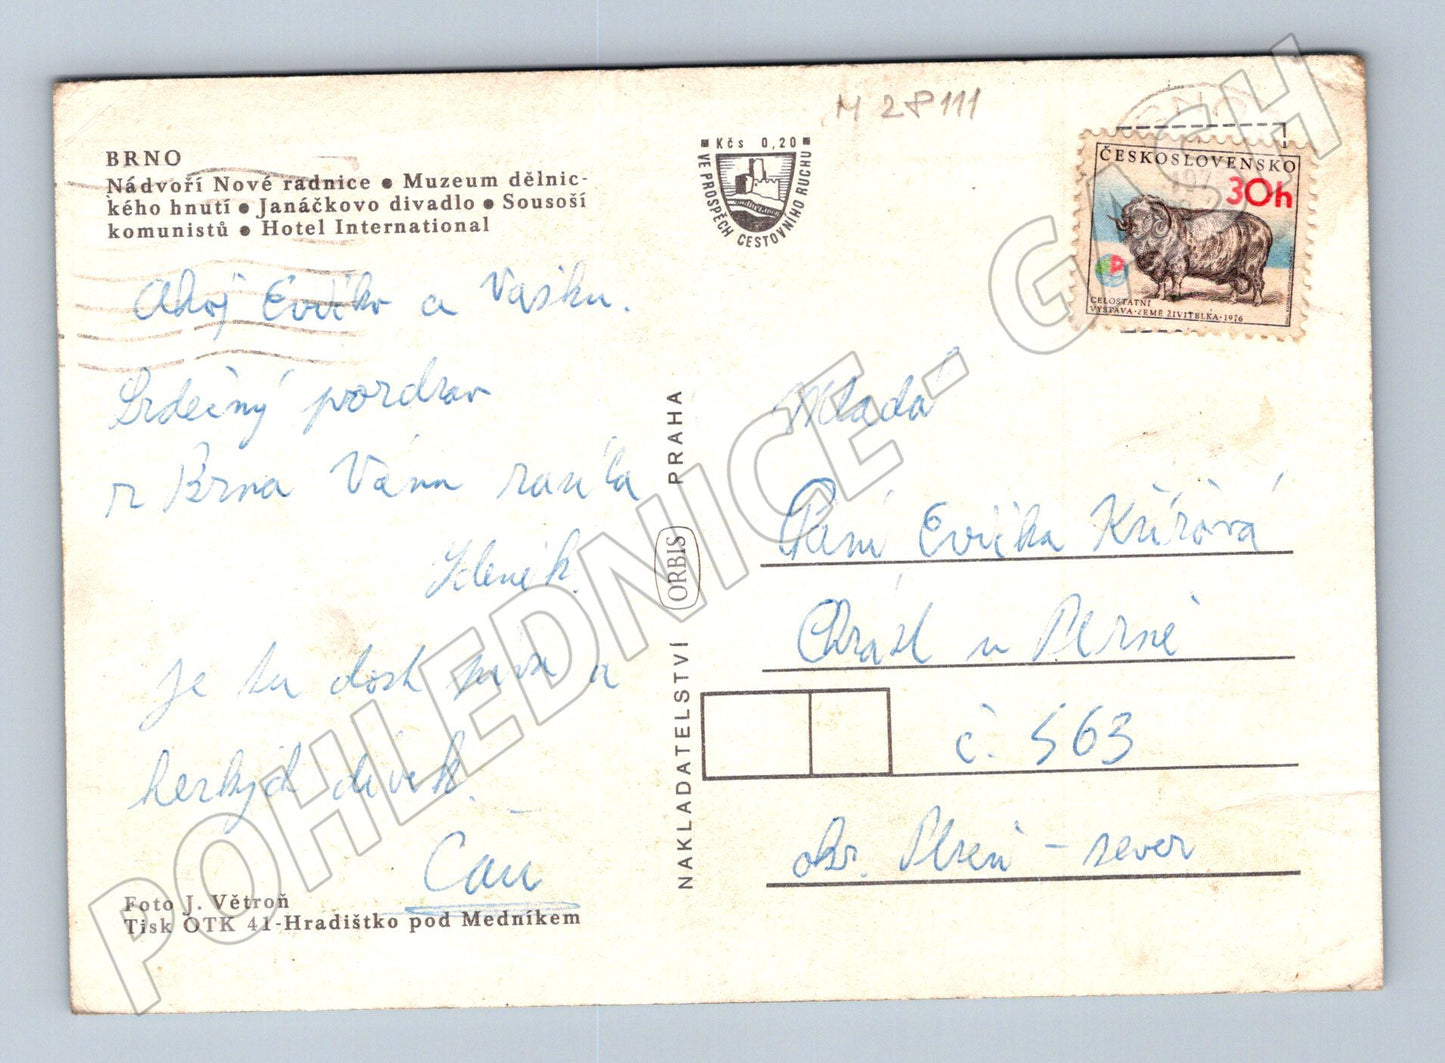 M 28111
BRNO
Nádvoří Nové radnice • Muzeum dělnic-
kého hnutí • Janáčkovo divadlo • Sousoší
komunistů • Hotel International
Kčs 0,20
VE PROSPĚCH CESTOVNÍHO RUCHU
ČESKOSLOVENSKO
30h
CELOSTATNÍ
VÝSTAVA·ZEMĚ ŽIVITELKA·1976
Ahoj Evičko a Vašku.
Srdečný pozdrav
z Brna Vám zasílá
Zdeněk.
je tu dost piva a
hezkých dívek.
Čau
Foto J. Větroň
Tisk OTK 41-Hradištko pod Medníkem
NAKLADATELSTVÍ ORBIS PRAHA
Mladá
Paní Evička Křížová
Chrást u Plzně
č. 563
okr. Plzeň - sever
POHLEDNICE - GASH